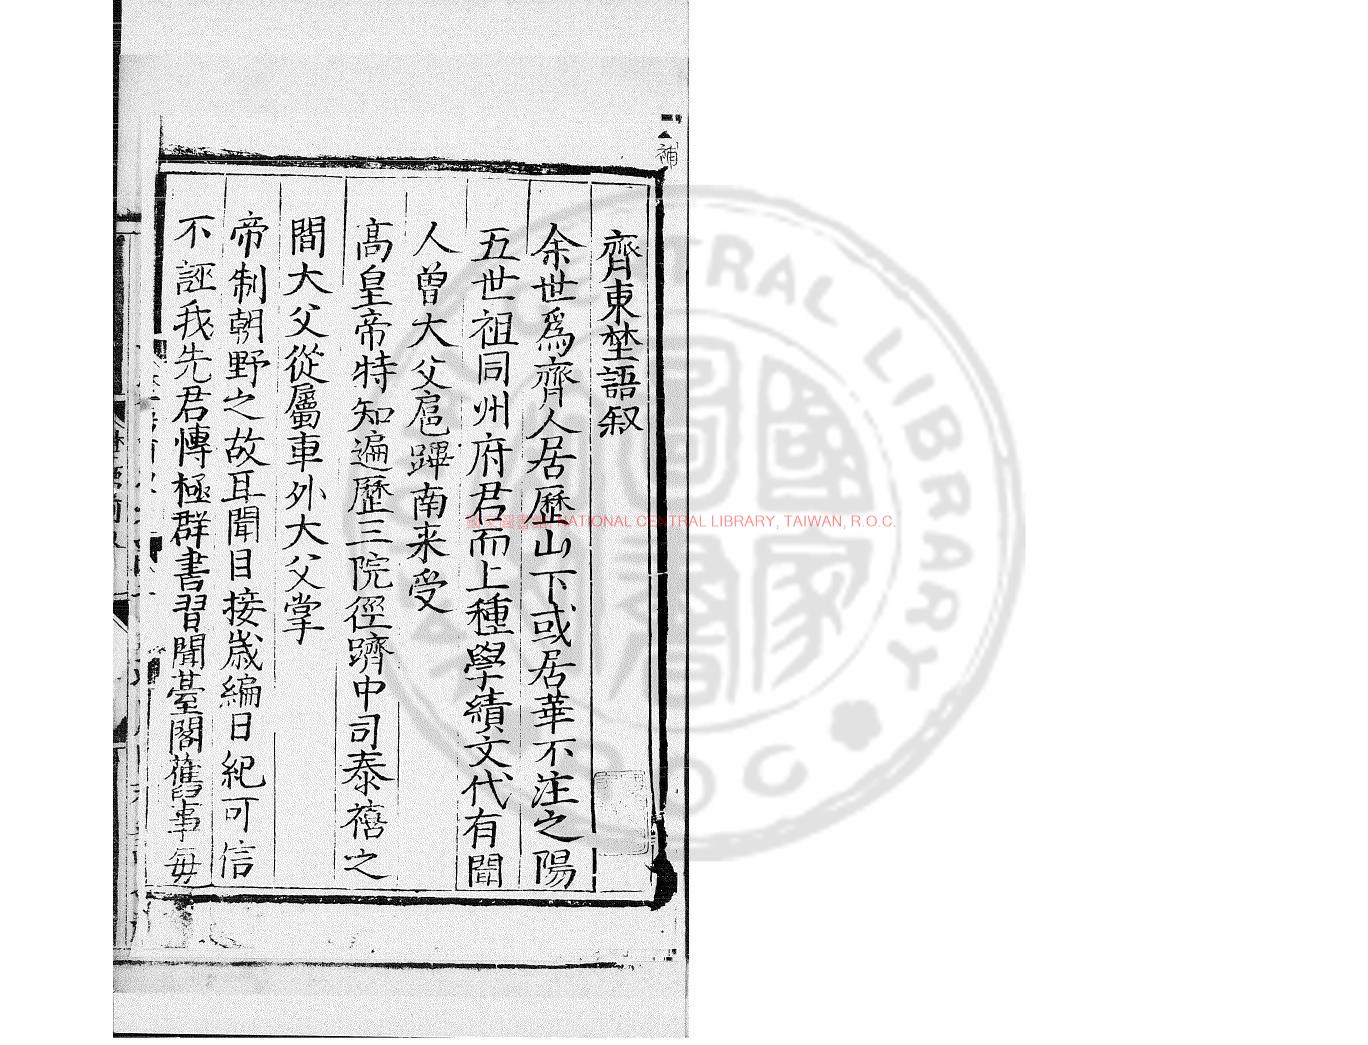 補
齊東埜語叙
余世爲齊人居歷山下或居華不注之陽
五世祖同州府君而上種學績文代有聞
人曾大父扈蹕南来受
高皇帝特知遍歷三院徑躋中司泰禧之
間大父從屬車外大父掌
帝制朝野之故耳聞目接歲編日紀可信
不誣我先君慱極群書習聞臺閣舊事每
NATIONAL CENTRAL LIBRARY, TAIWAN, R.O.C.